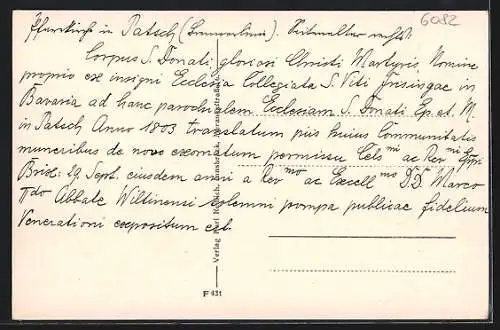 6082
Pfarrkirche in Patsch (Brennerlinie). Seitenaltar rechts:
Corpus S. Donati gloriosi Christi Martyris Nomine
proprio ex insigni Ecclesia Collegiata S. Viti Frisingae in
Bavaria ad hanc parochialem Ecclesiam S. Donati Ep. et. M.
in Patsch Anno 1803 translatum pius huius Communitatis
muneribus de novo exornatum permissu Cels mi ac Rev mi Eppi
Brix: 19. Sept. eiusdem anni a Rev mo ac Excell mo D.D. Marco
Abbate Wiltinensi solemni pompa publicae fidelium
Venerationi expositum est.
Verlag Karl Redlich, Innsbruck,
F 431